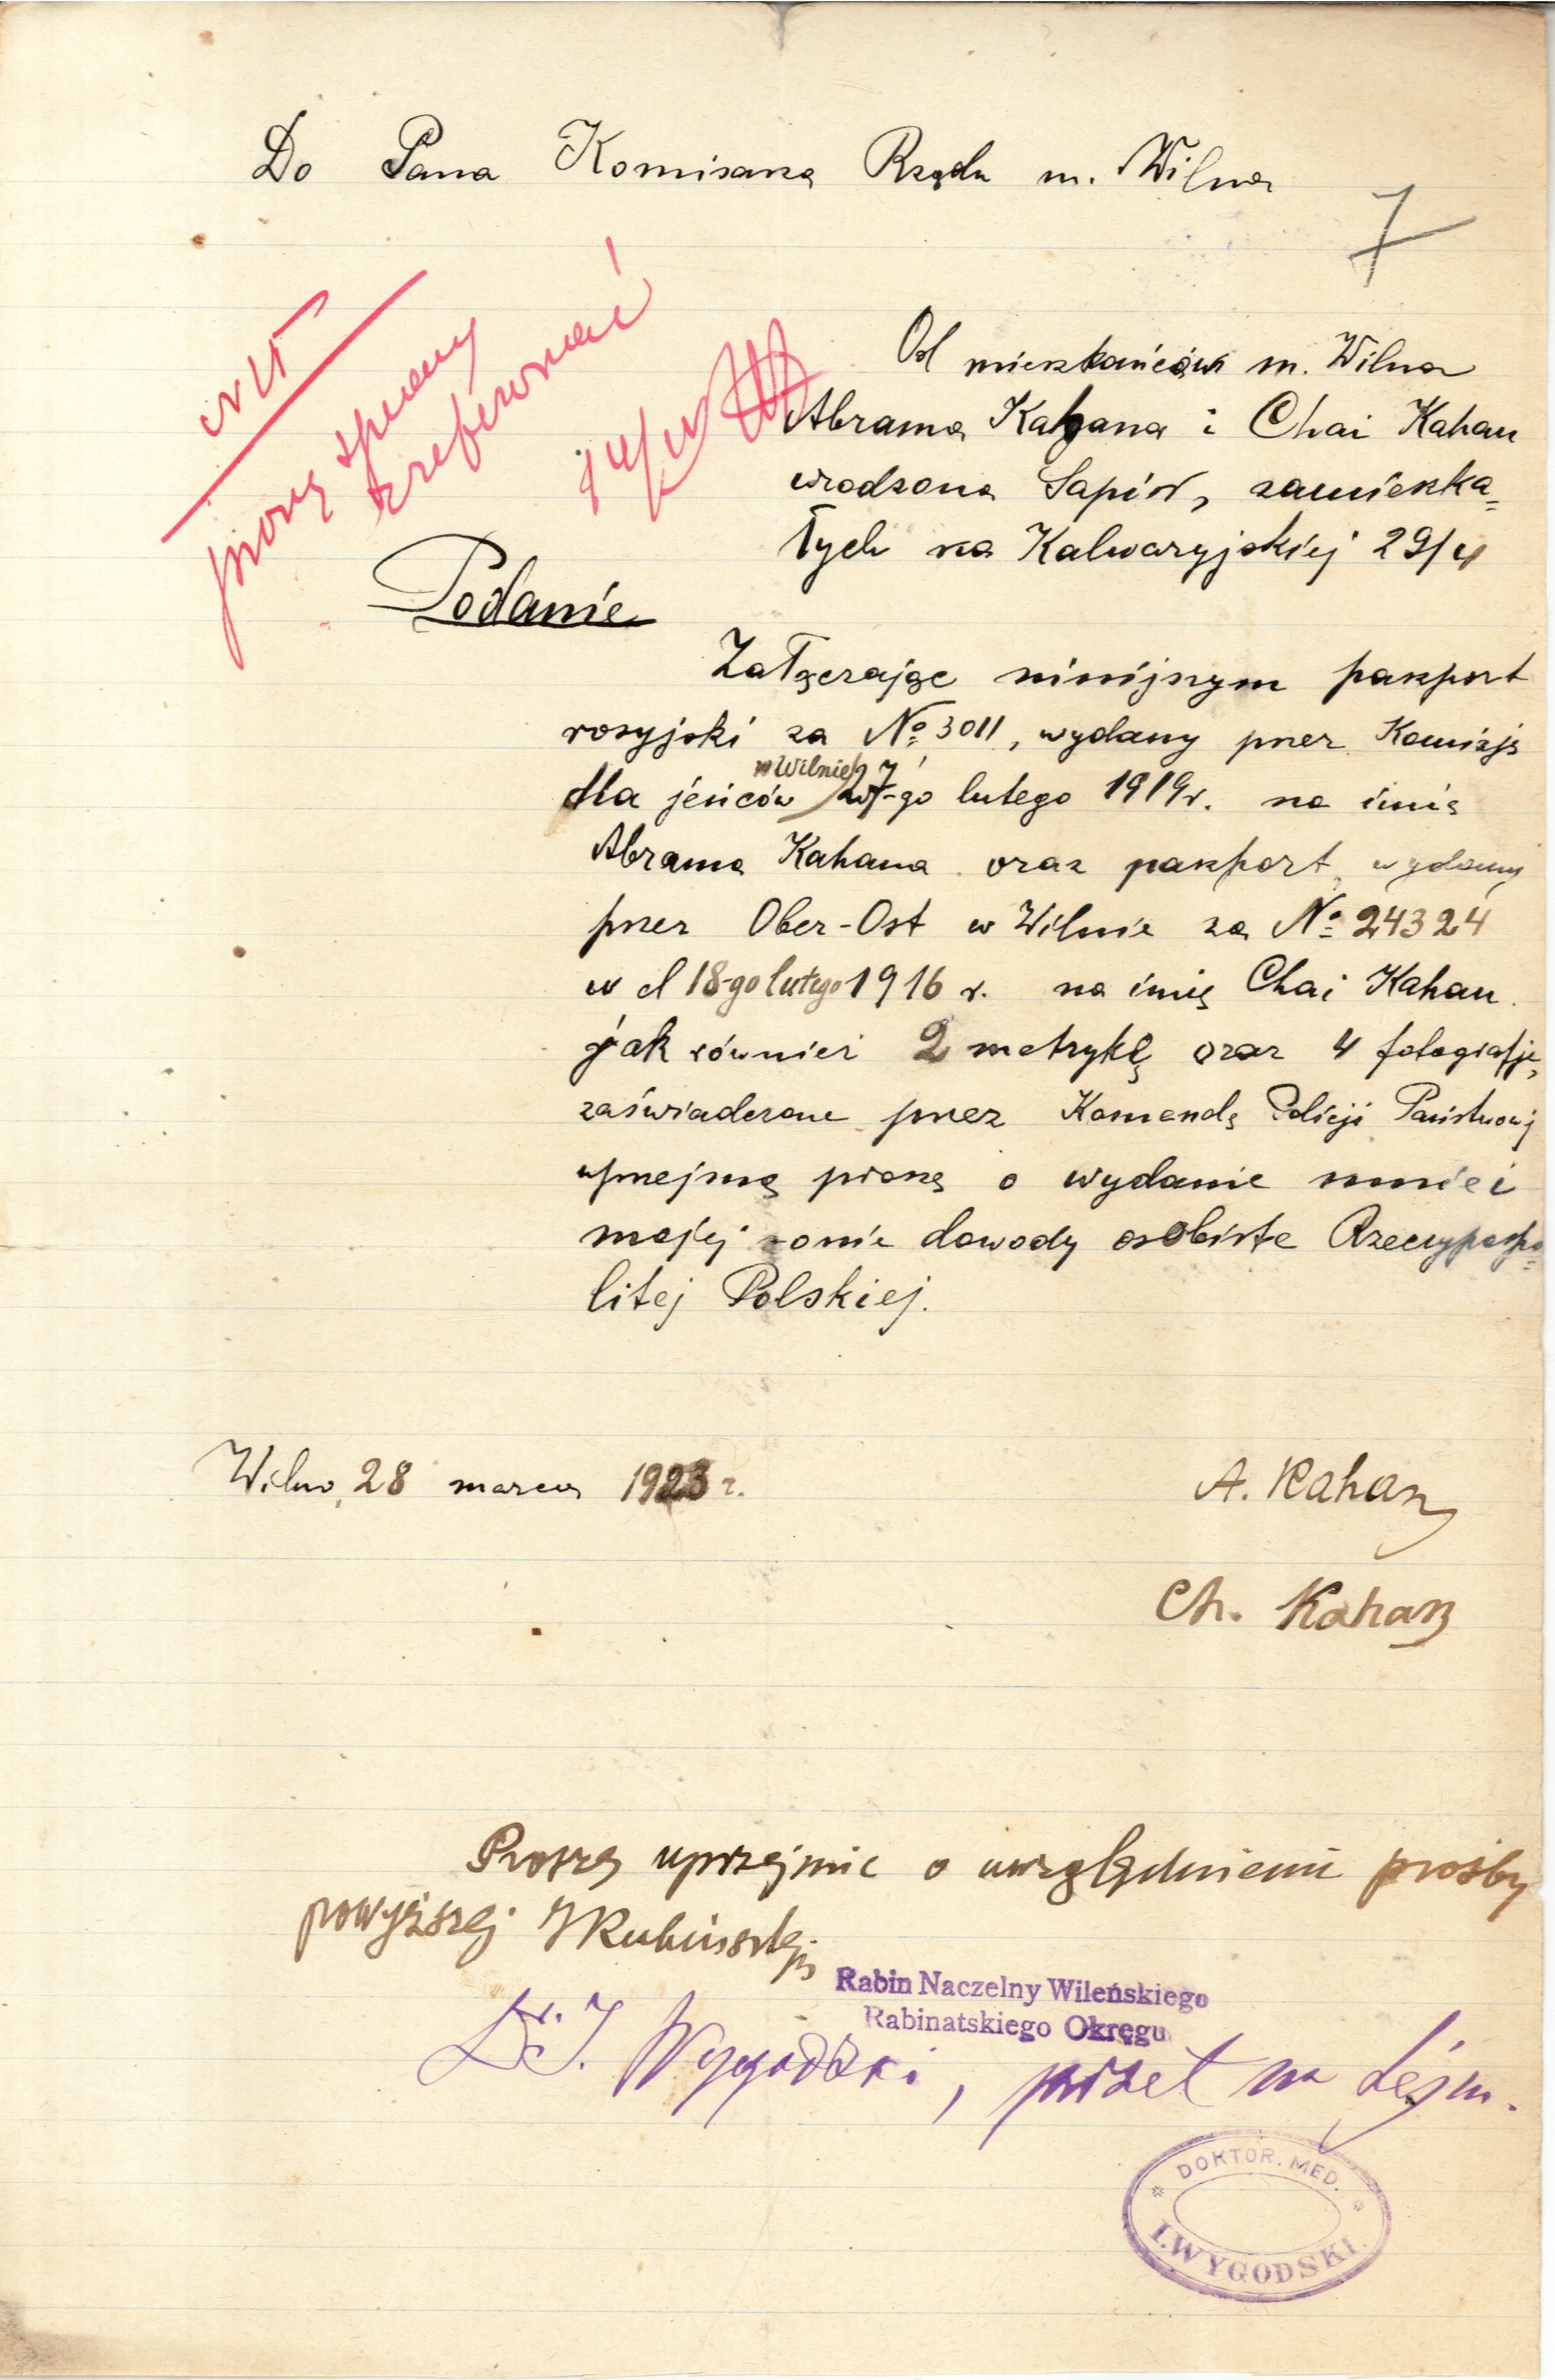 Do Pana Komisarza Rządu m. Wilna
7
Od mieszkańców m. Wilna
Abrama Kahana i Chai Kahan
urodzona Sapir, zamieszka=
łych na Kalwaryjskiej 29/4
proszę sprawę
zreferować
14/IV
Podanie
Załączając niniejszym paszport
rosyjski za № 3011, wydany przez Komisję
dla jeńców w Wilnie 27-go lutego 1919 r. na imię
Abrama Kahana oraz paszport, wydany
przez Ober-Ost w Wilnie za № 24324
w d 18-go lutego 1916 r. na imię Chai Kahan
jak również 2 metrykę oraz 4 fotografje,
zaświadczone przez Komendę Policji Państwowej
uprzejmą proszę o wydanie mnie i
mojej żonie dowody osobiste Rzeczypospo=
litej Polskiej.
Wilno, 28 marca 1923 r.
A. Kahan
Ch. Kahan
Proszę uprzejmie o uwzględnienie prośby
powyższej I Rubinsztejn
Rabin Naczelny Wileńskiego
Rabinatskiego Okręgu
Dr. J. Wygodzki, poseł na Sejm.
DOKTOR. MED.
I. WYGODSKI.